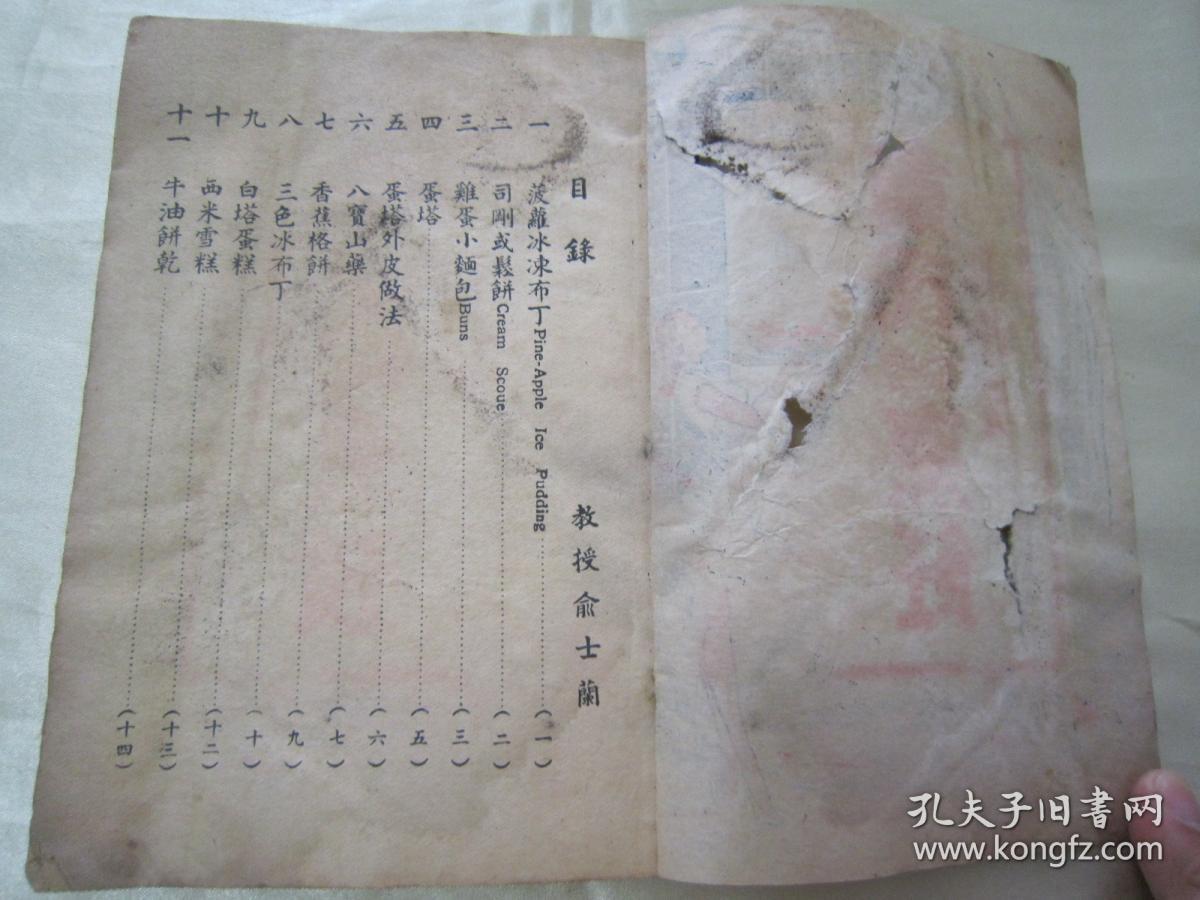 目錄 教授俞士蘭
一 菠蘿冰凍布丁Pine-Apple Ice Pudding (一)
二 司剛或鬆餅Cream Scoue (二)
三 雞蛋小麵包Buns (三)
四 蛋塔 (五)
五 蛋塔外皮做法 (六)
六 八寶山藥 (七)
七 香蕉格餅 (九)
八 三色冰布丁 (十)
九 白塔蛋糕 (十二)
十 西米雪糕 (十三)
十一 牛油餅乾 (十四)
孔夫子旧书网
www.kongfz.com